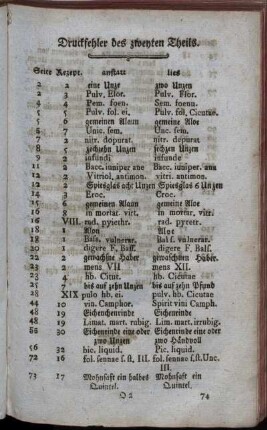 Druckfehler des zweyten Theils.
Seite Rezept. anstatt lies
2 2 eine Unze zwo Unzen
3 3 Pulv. Elor. Pulv. Flor.
4 4 Pem. foen. Sem. foenu.
5 5 Pulv. fol. ei. Pulv. fol, Cicutae.
6 5 gemeinen Alaun gemeine Aloe
5 7 Unic. sem. Unc. sem.
7 2 nitr. depurat. nitr. depurat.
8 5 sechzehn Unzen sechzehn Unzen
9 2 infundi infunde
11 2 Bacc. iuniper ane Bacc. iuniper. ana
12 2 Vitriol. antimon. vitri. antimon.
12 2 Spiesglas acht Unzen Spiesglas 6 Unzen
14 3 Eroc. Croc.
15 6 gemeinen Alaun gemeine Aloe
16 8 in mortat. vitr. in mortar. vitr.
16 VIII. rad. pyiethr. rad. pyrethr.
18 1 Aloe
18 1 Bals. vulnerar. Bals. vulnerar.
20 1 digere F. Balf. digere f. Balf.
22 2 gewaschnen Haber.
23 2 mens VII mens XII.
23 4 hb. Citut. hb. Cicutae
25 7 bis auf zehn Unzen bis auf zehn Pfund
28 XIX pulo hb. ei. pulv. hb. Cicutae
44 10 via. Camphor. Spirit vini
48 19 Eichenrinde Eichenrinde
49 19 Limat. mart. rubig. Lim. mart. irrubig.
55 30 Eichenrinde eine oder Eichenrinde eine oder
zwo Unzen zwo Handvoll
56 32 hic. liquid. Pic. liquid.
72 16 fol. sennae s. ft. III. fol. sennae s.ft.Unc.
III.
73 17 Mohnsaft ein halbes Mohnsaft ein
Quintel. Quintel.
74